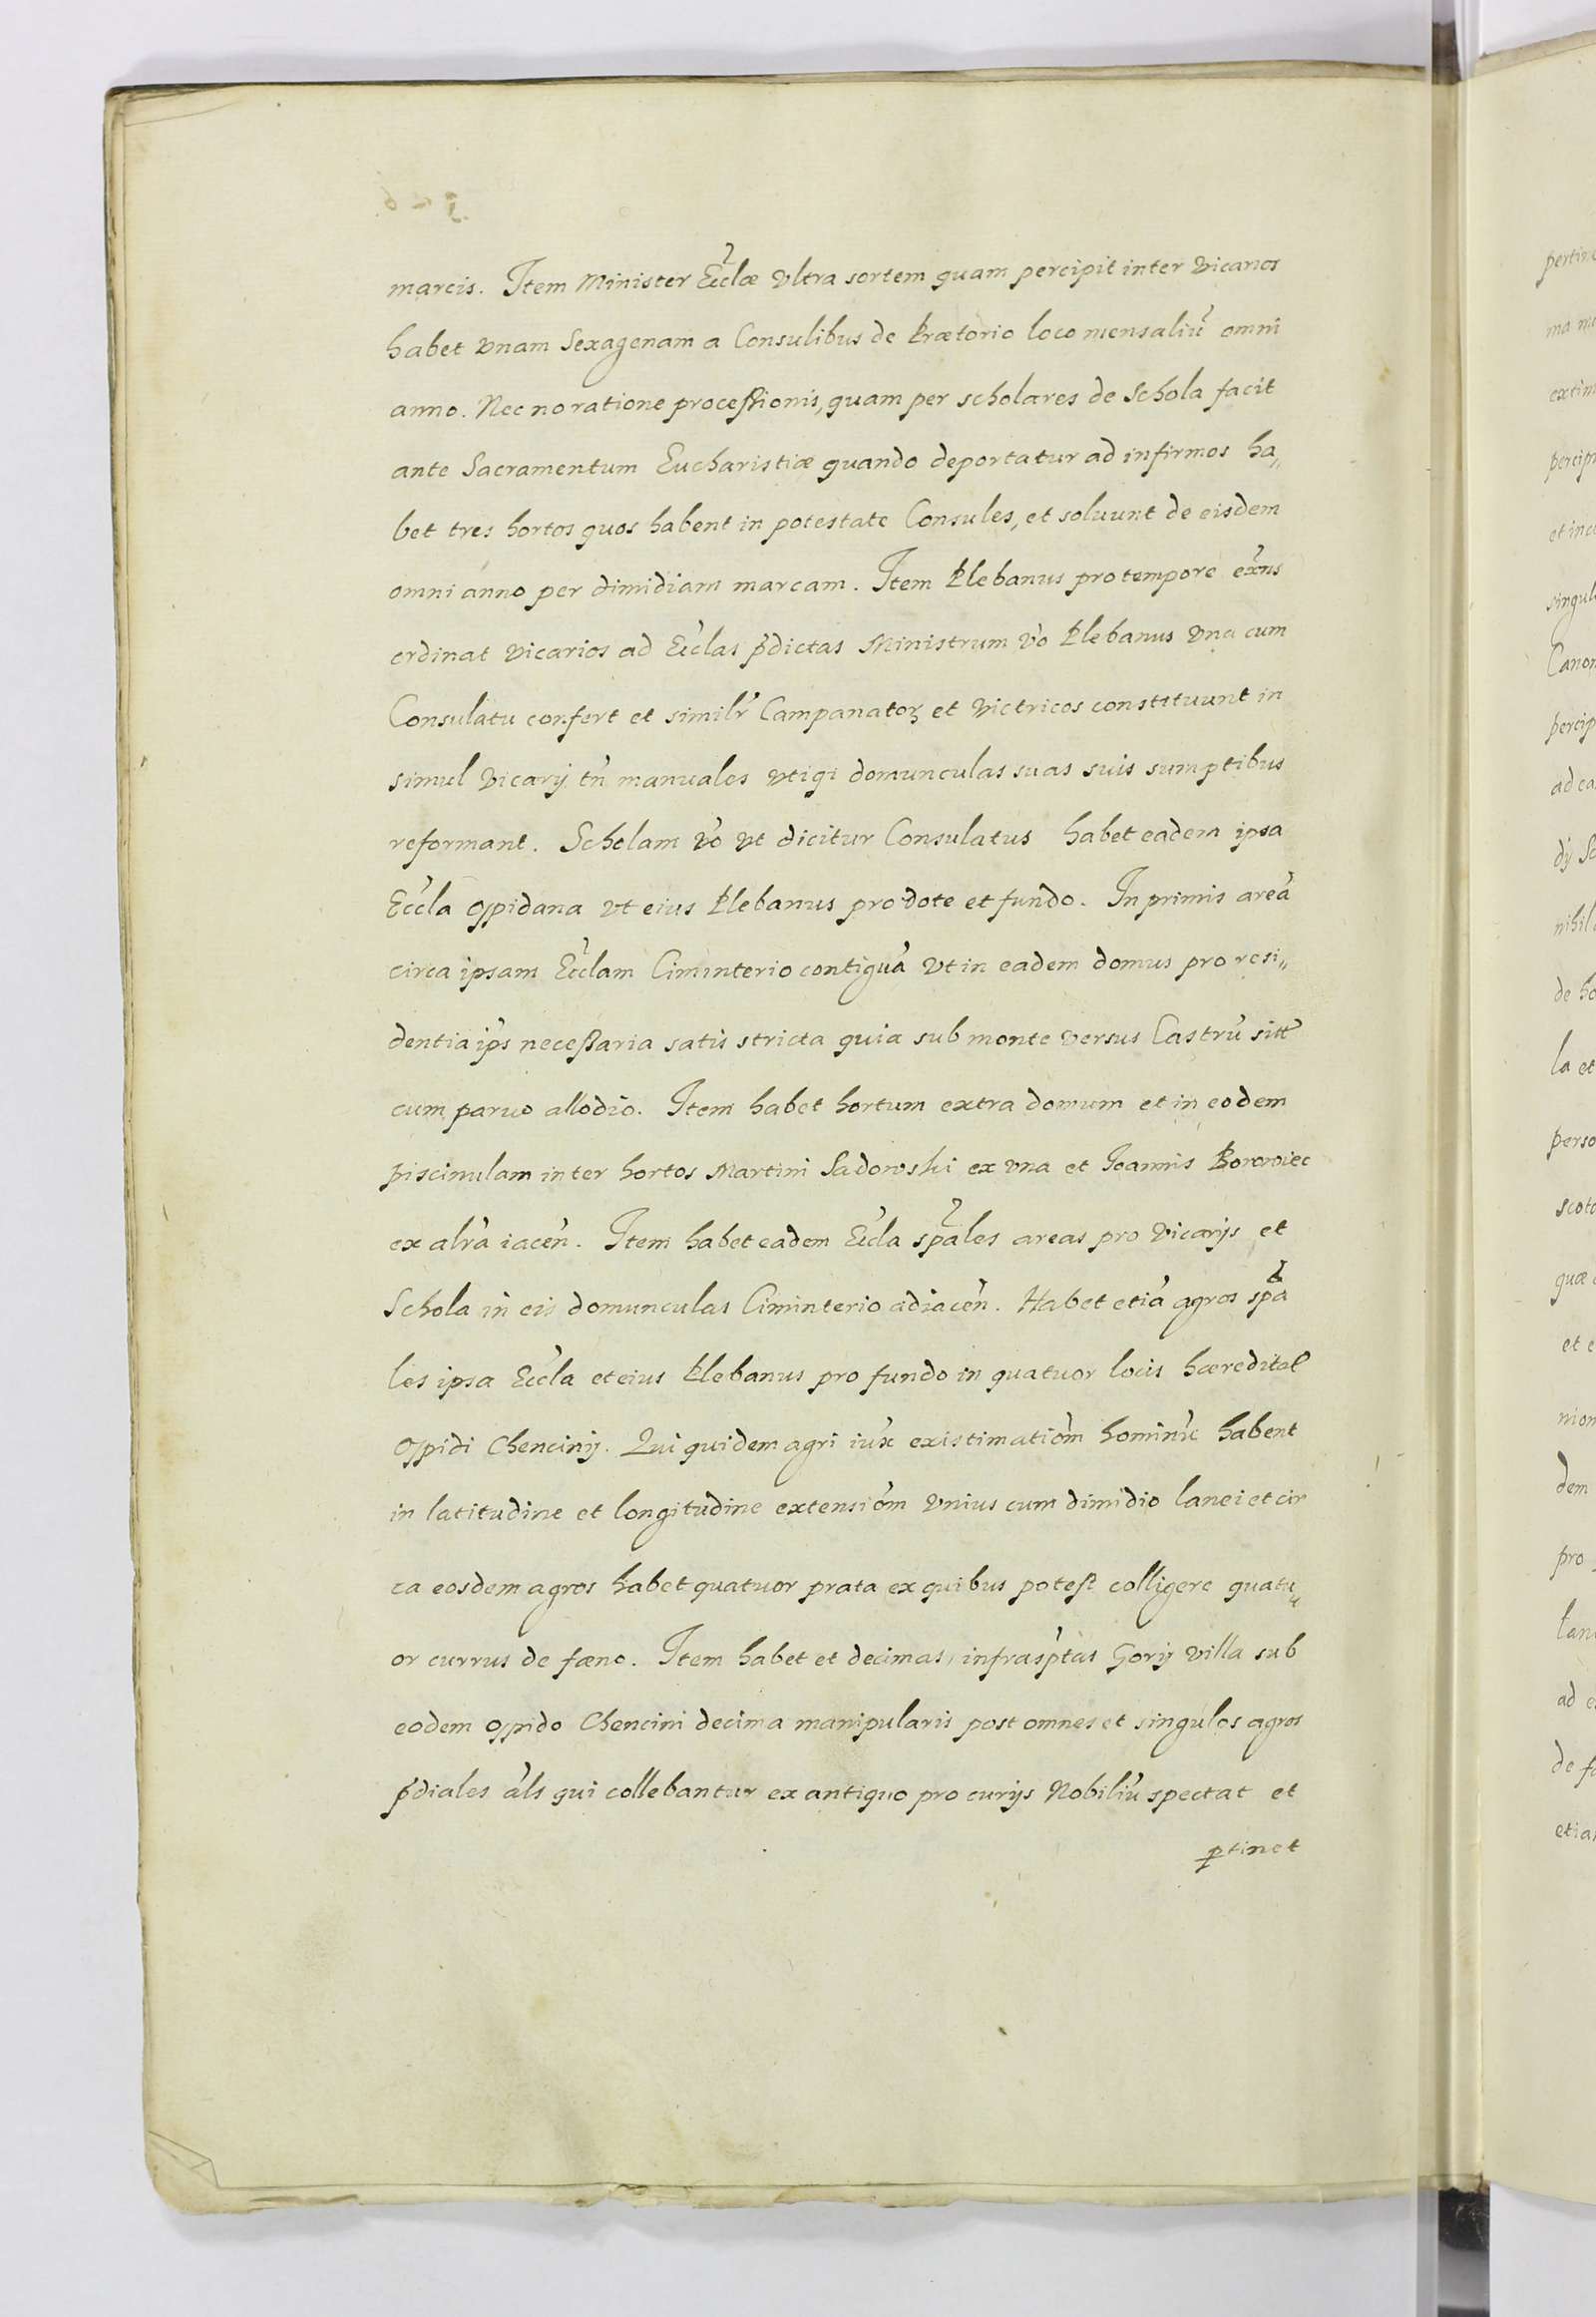 marcis. Item Minister Ecclæ Vltra sortem quam percipit inter Vicarios
habet vnam Sexagenam a Consulibus de Prætorio loco mensaliũ omni
anno. Nec no ratione processionis, quam per scholares de Schola facit
ante Sacramentum Eucharistiæ quando deportatur ad infirmos ha„
bet tres hortos quos habent in potestate Consules, et soluunt de eisdem
omni anno per dimidiam marcam. Item Plebanus pro tempore exñs
ordinat Vicarios ad Ecclas p̃dictas Ministrum Vo Plebanus Vna cum
Consulatu confert et similr Campanatoꝝ et Victricos constituunt in
simul Vicarij tñ manuales domunculas suas suis sumptibus
reformant. Scholam Vo Vt dicitur Consulatus habet eadem ipsa
Eccla oppidana Vt eius Plebanus pro dote et fundo. In primis areã
circa ipsam Ecclam Ciminterio contiguã Vt in eadem domus pro resi„
dentia ips necessaria satis stricta quia sub monte versus Castrũ sitt
cum paruo allodio. Item habet hortum extra domum et in eodem
piscinulam inter hortos Martini Sadowski ex vna et Joannis Borowiec
ex alrã iaceñ. Item habet eadem Eccla spãles areas pro Vicarijs et
Schola in eis domunculas Ciminterio adiaceñ. Habet etiã agros spã
les ipsa Eccla et eius Plebanus pro fundo in quatuor locis hæredital
oppidi Chencinij. Qui quidem agri iux existimatiõm hominũ habent
in latitudine et longitudine extensiõm Vnius cum dimidio lanei et cir
ca eosdem agros habet quatuor prata ex quibus potest colligere quatu„
or currus de fæno. Item habet et decimas infrasptas Gorij villa sub
eodem oppido Chencini decima manipularis post omnes et singulos agros
p̃diales als qui collebantur ex antiquo pro curijs Nobiliũ spectat et
ꝑtinet